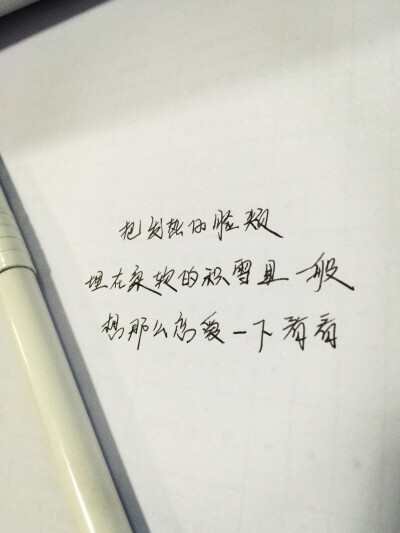 把发热的脸颊
埋在柔软的积雪里一般
想那么恋爱一下看看